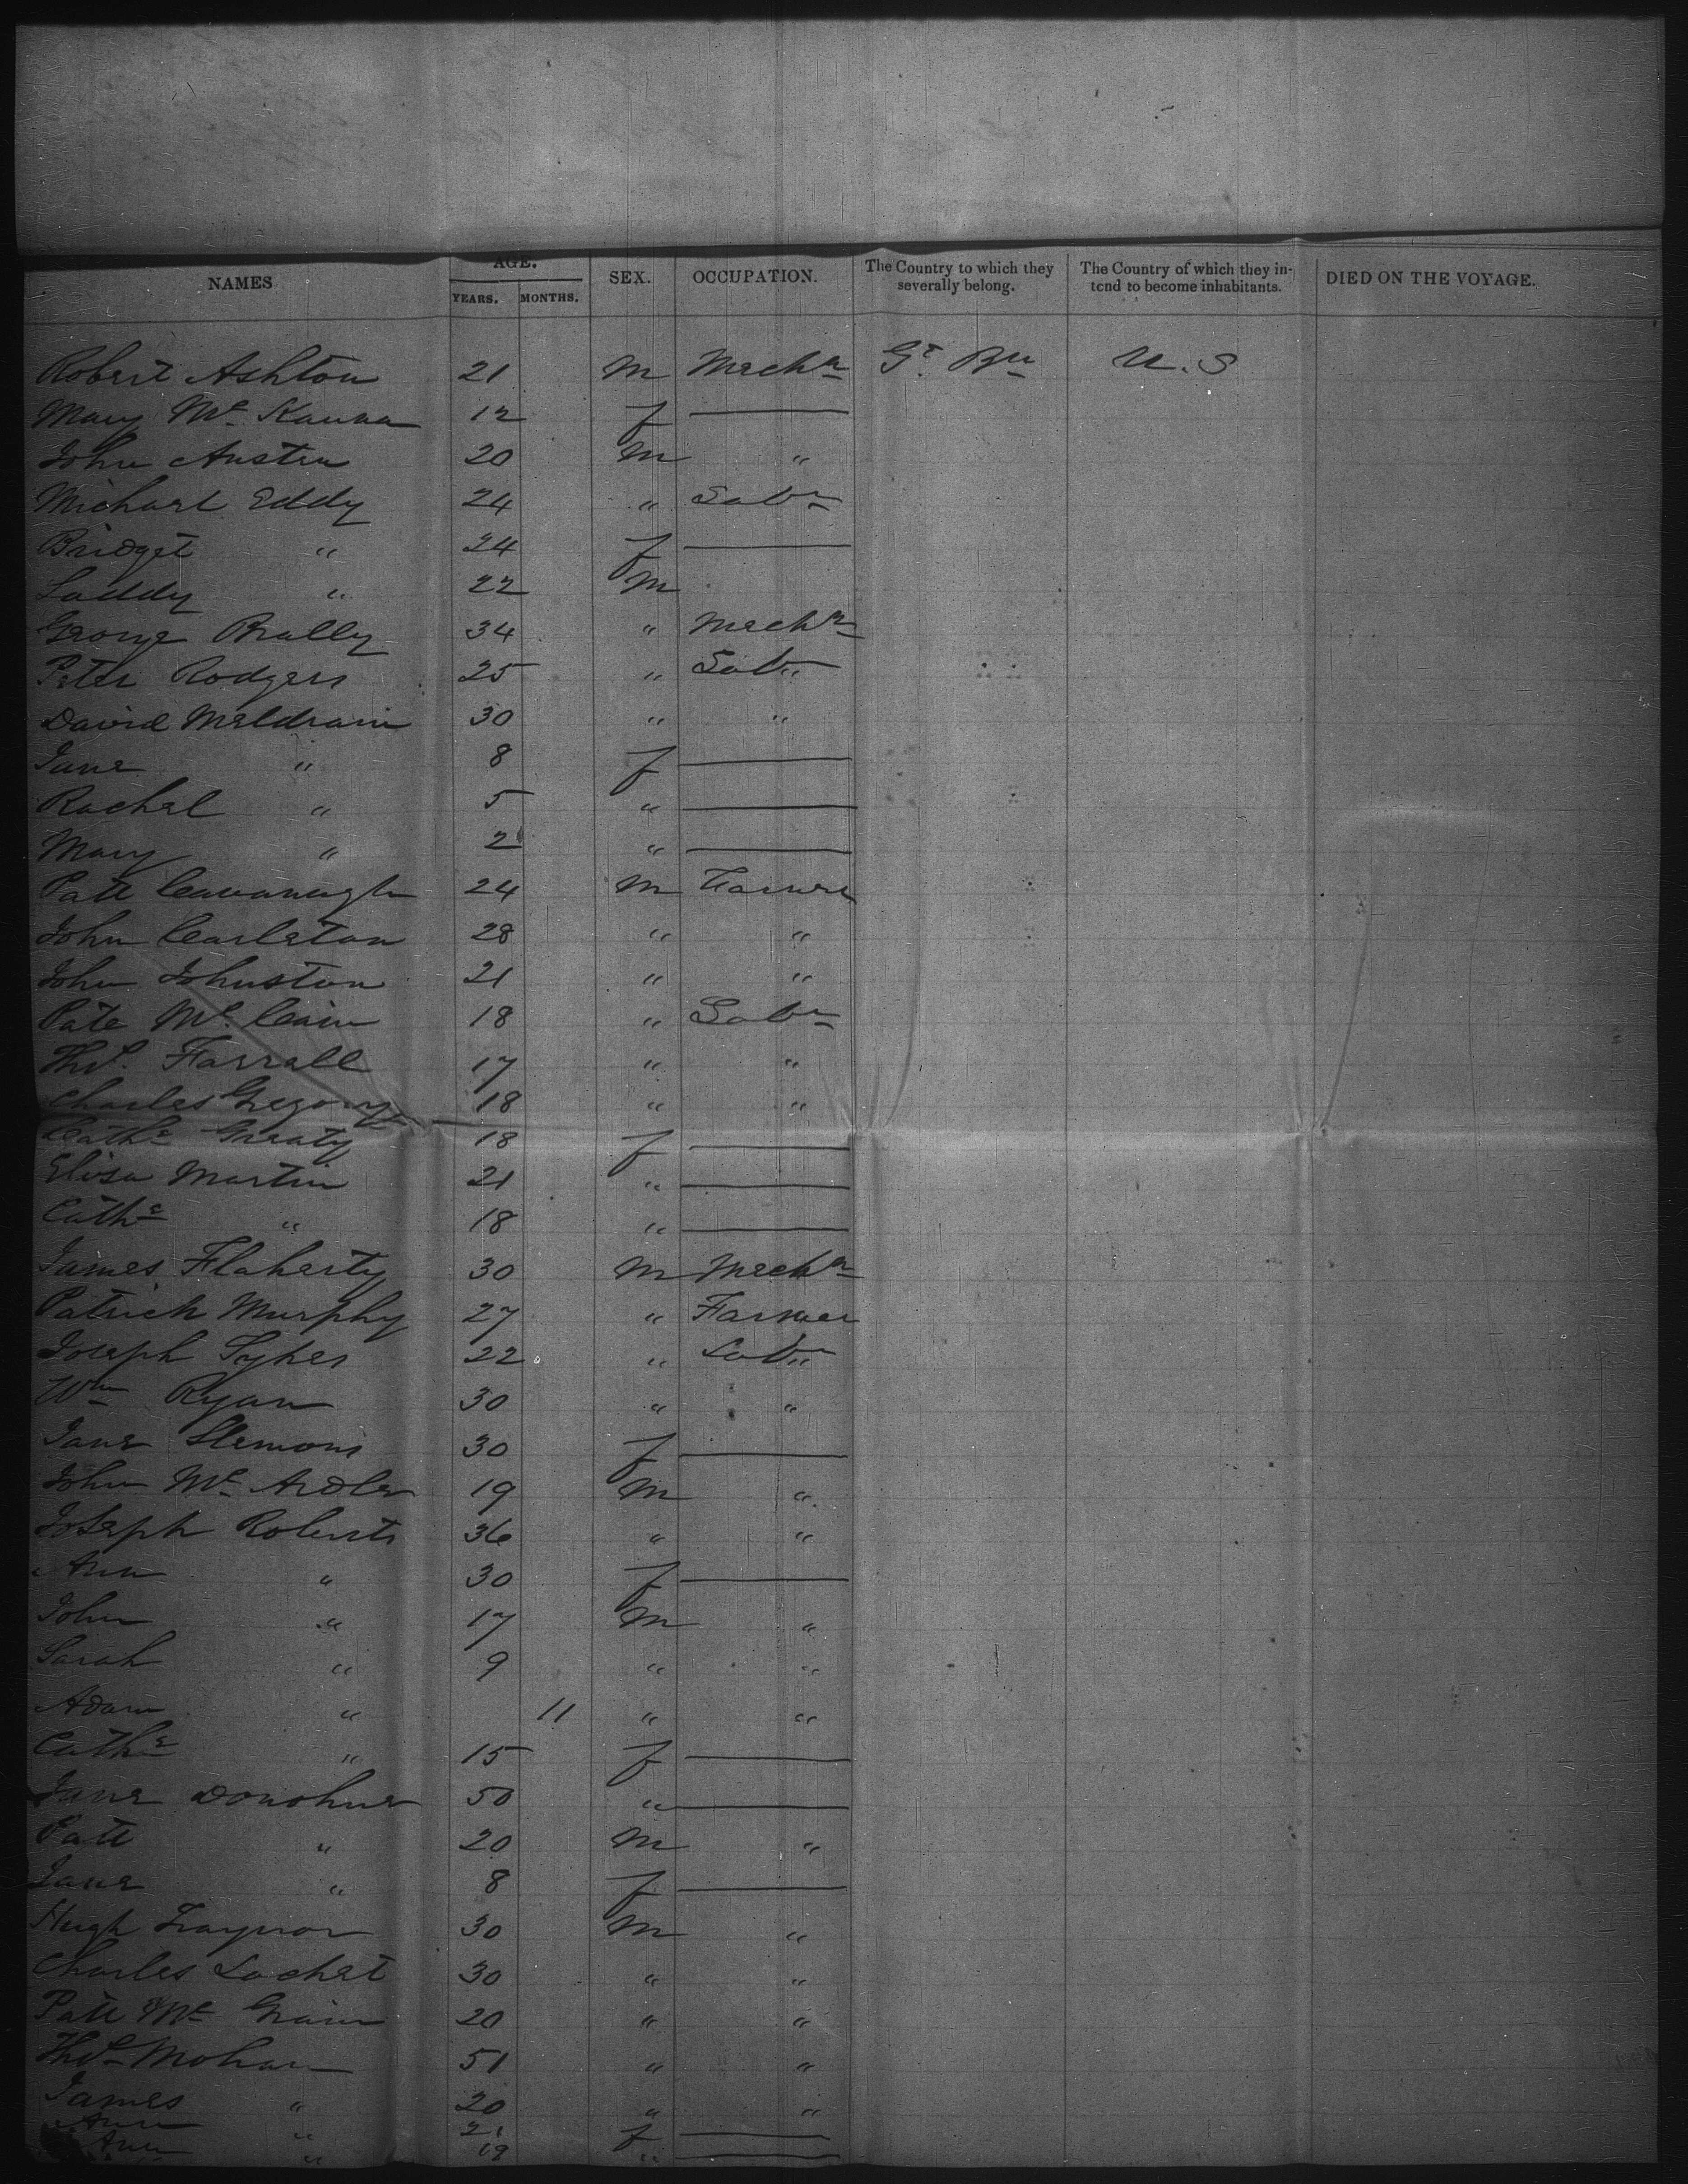 NAMES AGE. YEARS. MONTHS. SEX. OCCUPATION. The Country to which they severally belong. The Country of which they intend to become inhabitants. DIED ON THE VOYAGE.
Robert Ashton 21 M Mechn Gt. Bn U.S
Mary Mc Kanna 12 f
John Austin 20 M "
Michael Eddy 24 " Labr
Bridget " 24 f
Laddy " 22 M
George Brally 34 " Mechn
Peter Rodgers 25 " Labr
David Meldrain 30 " "
Jane " 8 f
Rachel " 5 "
Mary " 2 "
Patt Cavanaugh 24 M Farmer
John Carleton 28 " "
John Johnston 21 " "
Pate Mc Cain 18 " Labr
Thos. Farrall 17 " "
Charles Gregory 18 " "
Cathe Greaty 18 f
Eliza Martin 21 "
Cathe " 18 "
James Flaherty 30 M Mechn
Patrick Murphy 27 " Farmer
Joseph Sykes 22 " Labr
Wm Ryan 30 " "
Jane Slemons 30 f
John Mc Ardle 19 M "
Joseph Roberts 36 " "
Ann " 30 f
John " 17 M "
Sarah " 9 " "
Adam " 11 " "
Cathe " 15 f
Jane Donohue 50 "
Patt " 20 M "
Jane " 8 f
Hugh Traynor 30 M "
Charles Lochet 30 " "
Patt Mc Grain 20 " "
Thos Mohan 51 " "
James " 20 " "
Ann " 21 f
Ann " 19 "